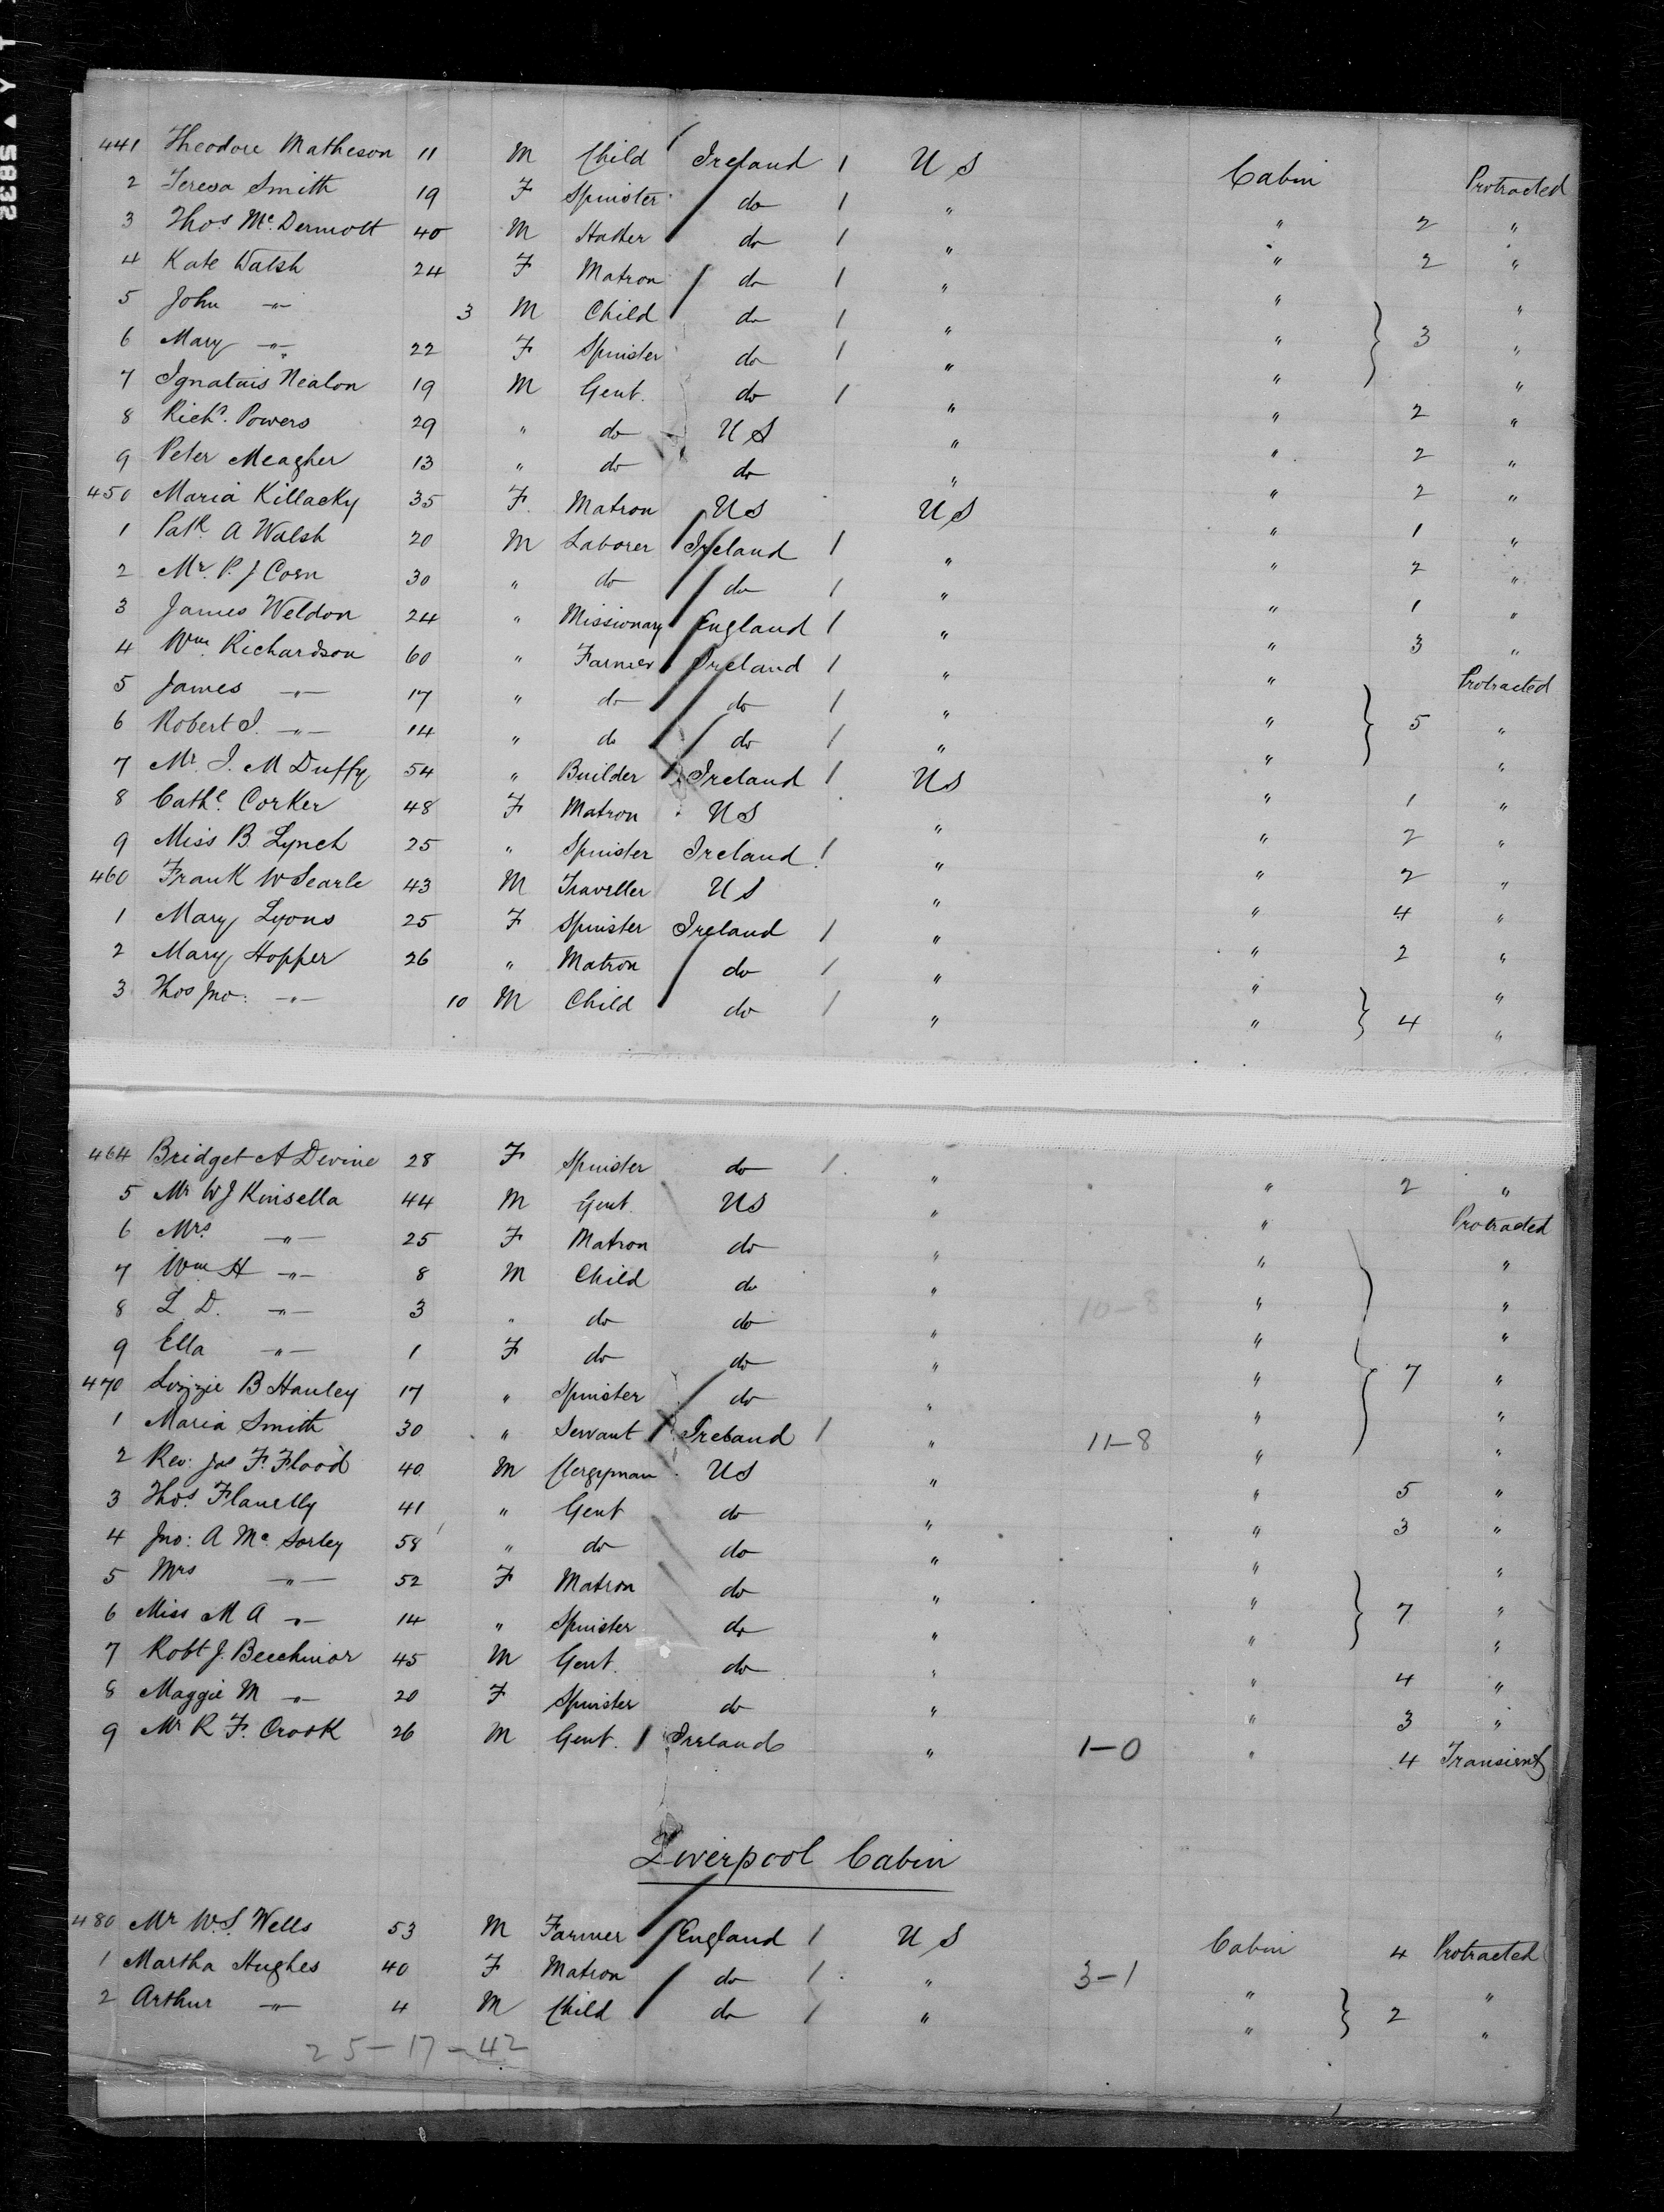 441 Theodore Matheson 11 M Child Ireland 1 U S Cabin Protracted
2 Teresa Smith 19 F Spinster do 1 " " 2 "
3 Thos. McDermott 40 M Hatter do 1 " " 2 "
4 Kate Walsh 24 F Matron do 1 " " "
5 John -"- 3 M Child do 1 " " 3 "
6 Mary -"- 22 F Spinster do 1 " " "
7 Ignatuis Nealon 19 M Gent. do 1 " " 2 "
8 Richd. Powers 29 " do U S " " 2 "
9 Peter Meagher 13 " do do " " 2 "
450 Maria Killacky 35 F. Matron US U S " 1 "
1 Patk. A Walsh 20 M Laborer Ireland 1 " " 2 "
2 Mr. P. J Corn 30 " do do 1 " " 1 "
3 James Weldon 24 " Missionary England 1 " " 3 "
4 Wm. Richardson 60 " Farmer Ireland 1 " " Protracted
5 James -"- 17 " do do 1 " " 5 "
6 Robert I. -"- 14 " do do 1 " " "
7 Mr. J. M Duffy 54 " Builder Ireland 1 US " 1 "
8 Cathe. Corker 48 F Matron US " " 2 "
9 Miss B. Lynch 25 " Spinster Ireland 1 " " 2 "
460 Frank W Searle 43 M Traveller U S " " 4 "
1 Mary Lyons 25 F Spinster Ireland 1 " " 2 "
2 Mary Hopper 26 " Matron do 1 " " "
3 Thos Jno: -"- 10 M Child do 1 " " 4 "
464 Bridget A Devine 28 F Spinster do 1 " " 2 "
5 Mr W J Kinsella 44 M Gent. US " " Protracted
6 Mrs. -"- 25 F Matron do " " "
7 Wm H -"- 8 M Child do " " "
8 L. D. -"- 3 " do do " 10-8 " "
9 Ella -"- 1 F do do " " 7 "
470 Lizzie B Hanley 17 " Spinster do " " "
1 Maria Smith 30 " Servant Ireland 1 " 11-8 " "
2 Rev: Jas F. Flood 40 M Clergyman US " " 5 "
3 Thos. Flanelly 41 " Gent do " " 3 "
4 Jno: A McSorley 58 " do do " " "
5 Mrs -"- 52 F Matron do " " 7 "
6 Miss M A -"- 14 " Spinster do " " "
7 Robt J. Beechinor 45 M Gent. do " " 4 "
8 Maggie M -"- 20 F Spinster do " " 3 "
9 Mr R F. Crook 26 M Gent. 1 Ireland " 1-0 " 4 Transient
Liverpool Cabin
480 Mr W. S. Wells 53 M Farmer England 1 U S Cabin 4 Protracted
1 Martha Hughes 40 F Matron do 1 " 3-1 " "
2 Arthur -"- 4 M Child do 1 " " 2 "
25-17-42